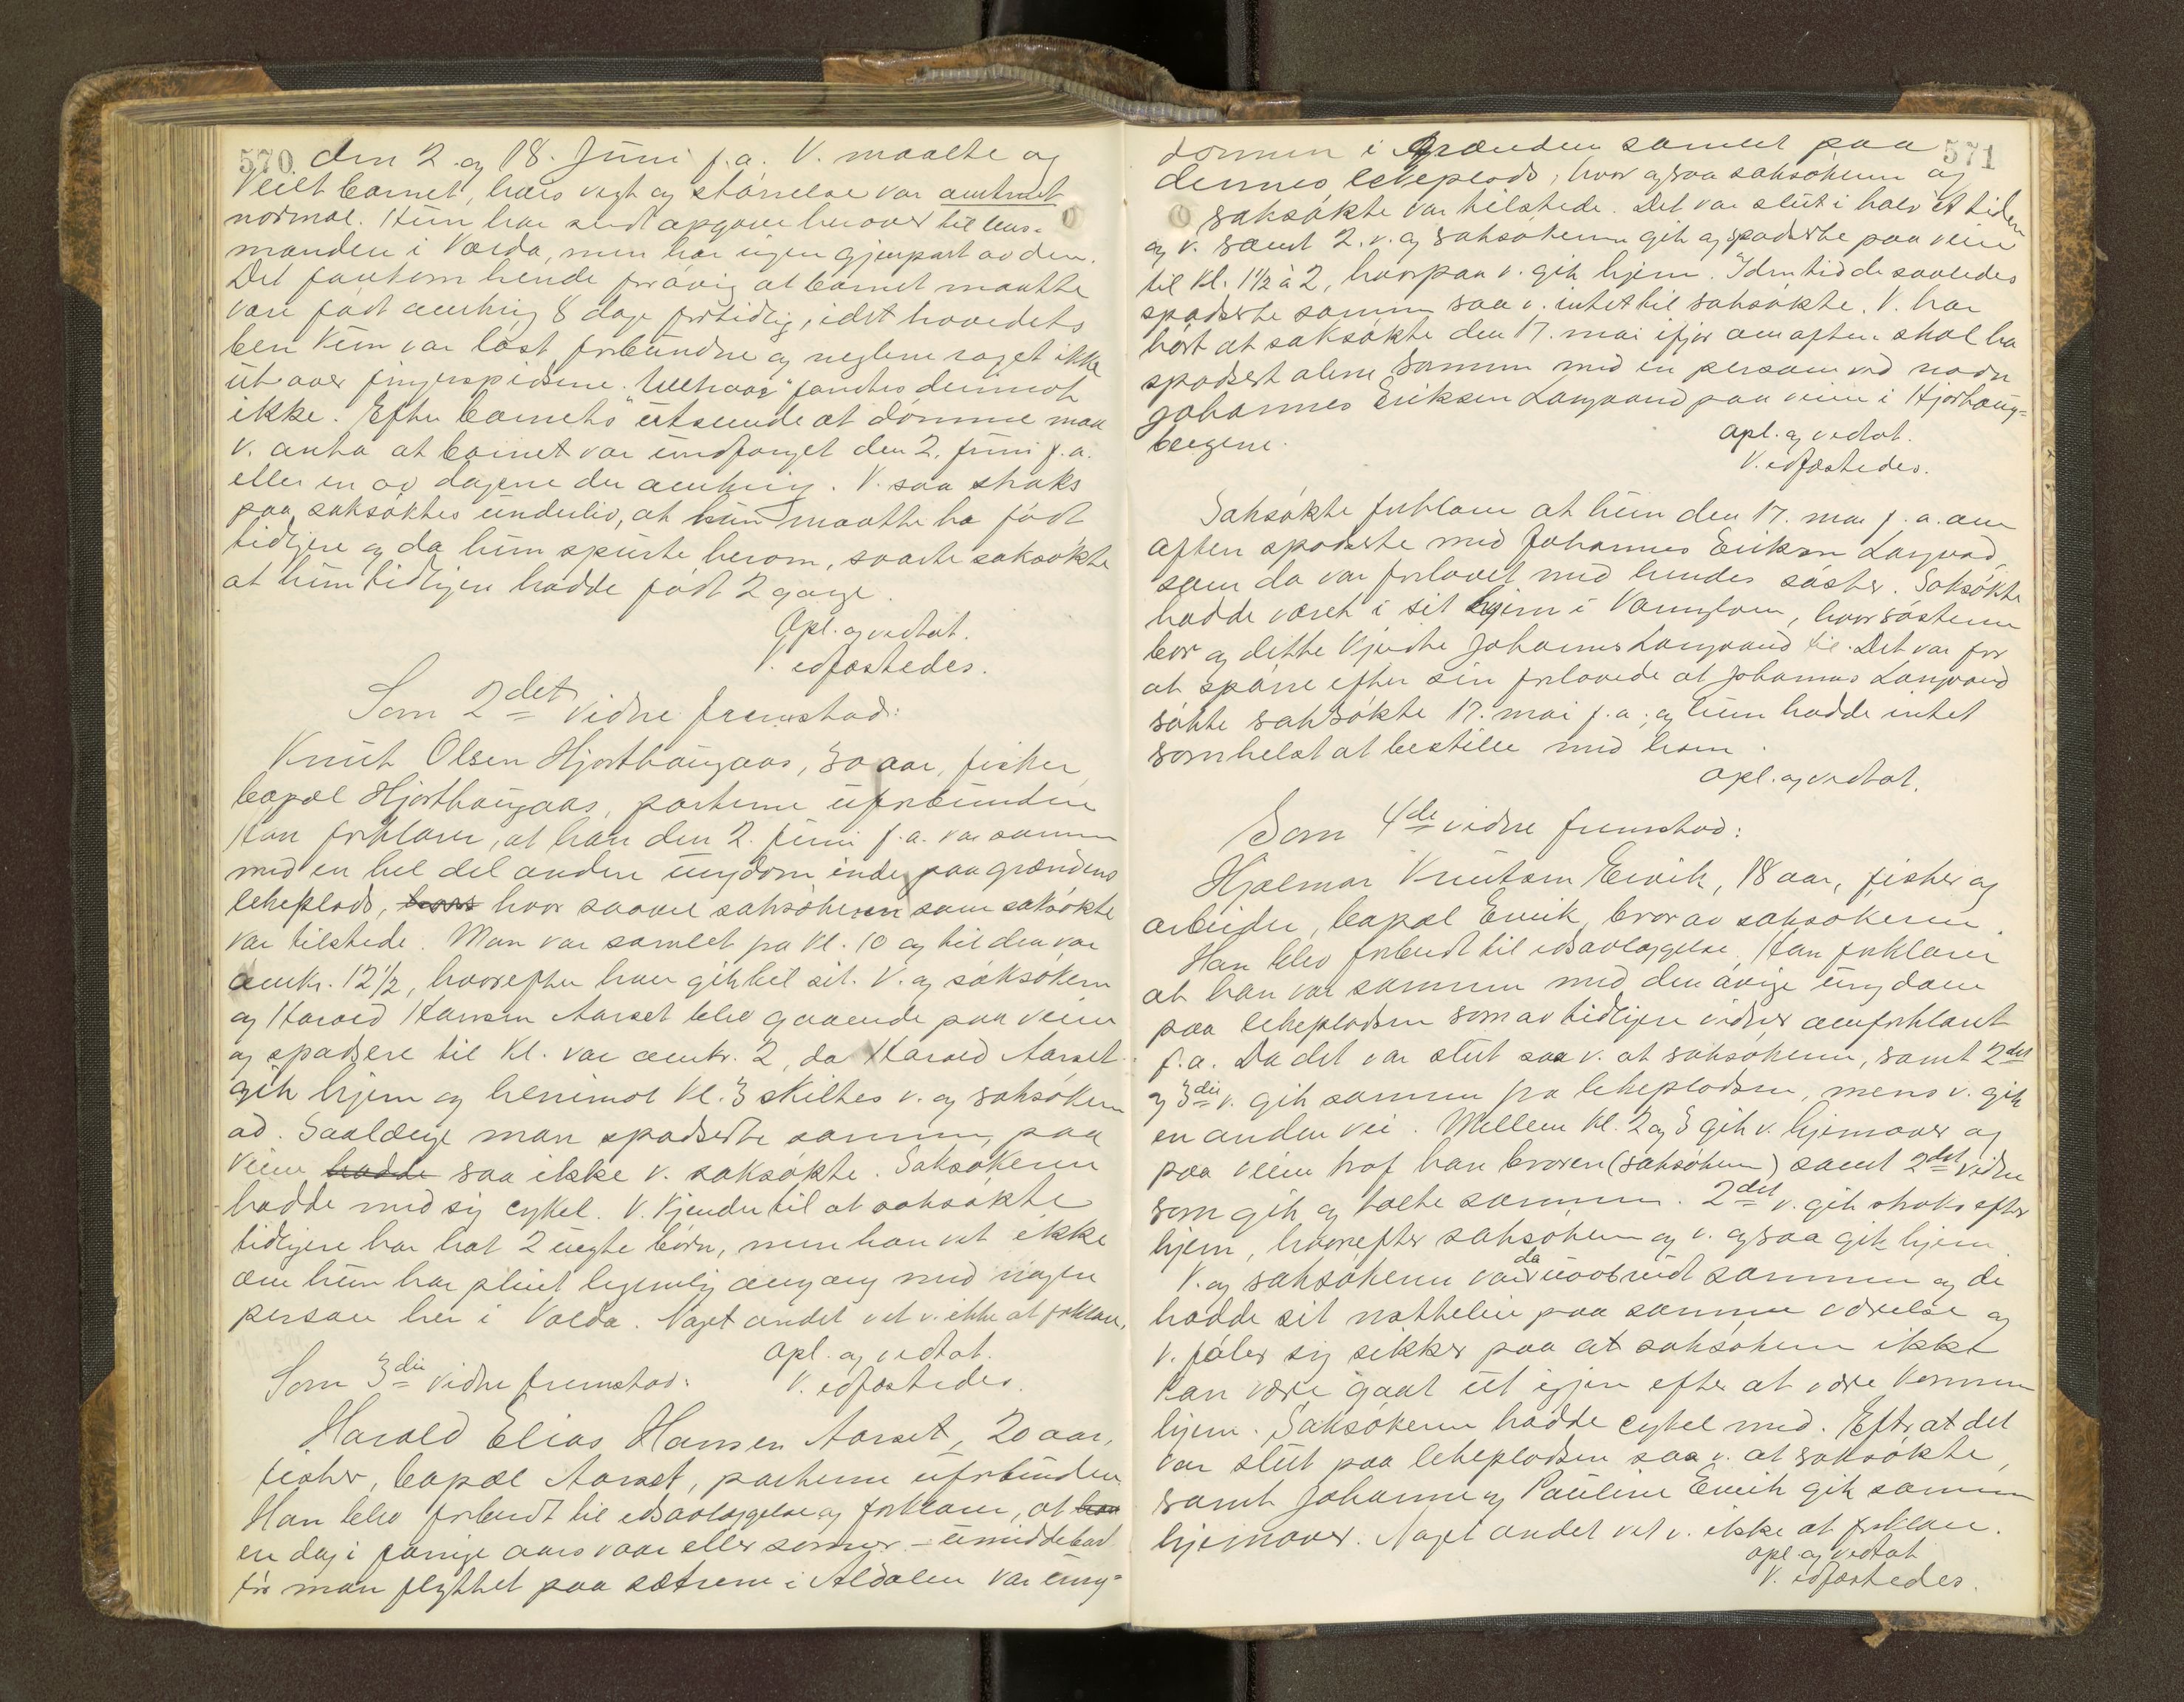 570
den 2. og 18. Juni f.a. V. maalte og
veiet barnet, hvis vegt og størrelse var omtrent
normal. Hun har sendt opgave herover til lens-
manden i Volda, men har ingen gjenpart av den.
Det forekom hende forøvrig at barnet maatte
være født omkring 8 dage fortidlig, idet hovedets
ben kun var løst forbundne og neglene raget ikke
ut over fingerspidsene. "Uldhaar" fandtes derimot
ikke. Efter barnets utseende at dømme maa
v. anta at barnet var undfanget den 2. juni f.a.
eller en av dagene der omkring. V. saa straks
paa saksøktes underliv, at hun maatte ha født
tidligere og da hun spurte herom, svarte saksøkte
at hun tidligere hadde født 2 gange.
Opl. og vedtat.
V. edfæstedes.
Som 2det vidne fremstod:
Knut Olsen Hjorthaugaas, 30 aar, fisker,
bopæl Hjorthaugaas, parterne uforbunden
Han forklarer, at han den 2. juni f.a. var sammen
med en hel del anden ungdom inde paa grændens
lekeplads, hvor saavel saksøkeren som saksøkte
var tilstede. Man var samlet fra kl. 10 og til den var
omkr. 12½, hvorefter hver gik til sit. V. og saksøkeren
og Harald Hansen Aarset blev gaaende paa veien
og spadsere til kl. var omkr. 2, da Harald Aarset
gik hjem og henimot kl. 3 skiltes v. og saksøkeren
ad. Saalænge man spadserte sammen paa
veien hadde saa ikke v. saksøkte. Saksøkeren
hadde med sig cykel. V. kjender til at saksøkte
tidligere har hat 2 uegte børn, men han vet ikke
om hun har pleiet legemlig omgang med nogen
person her i Volda. Noget andet vet v. ikke at forklare.
Opl. og vedtat.
V. edfæstedes.
Som 3die vidne fremstod:
Harald Elias Hansen Aarset, 20 aar,
fisker, bopæl Aarset, parterne uforbunden
Han blev forberedt til edsavlæggelse og forklarer, at han
en dag i forrige aars vaar eller sommer – umiddelbart
før man flyttet paa sætrene i Aldalen var ung-
571
dommen i Grænden samlet paa
dennes lekeplads, hvor ogsaa saksøkeren og
saksøkte var tilstede. Det var slut i halv et tiden
og v. samt 2. v. og saksøkeren gik og spadserte paa veien
til kl. 1½ à 2, hvorpaa v. gik hjem. I den tid de saaledes
spadserte sammen saa v. intet til saksøkte. V. har
hørt at saksøkte den 17. mai ifjor om aften skal ha
spadsert alene sammen med en person ved navn
Johannes Eriksen Langvand paa veien i Hjorthaug-
bergene.
Opl. og vedtat.
V. edfæstedes.
Saksøkte forklarer at hun den 17. mai f.a. om
aften spaserte med Johannes Eriksen Langvand,
som da var forlovet med hendes søster. Saksøkte
hadde været i sit hjem i Vannylven, hvor søsteren
bor og dette kjendte Johannes Langvand til. Det var for
at spørre efter sin forlovede at Johannes Langvand
søkte saksøkte 17. mai f.a. og hun hadde intet
somhelst at bestille med ham.
Opl. og vedtat.
Som 4de vidne fremstod:
Hjalmar Knutsen Ervik, 18 aar, fisker og
arbeider, bopæl Ervik, bror av saksøkeren.
Han blev forberedt til edsavlæggelse. Han forklarer
at han var sammen med den øvrige ungdom
paa lekepladsen som av tidligere vidner omforklart
f.a. Da det var slut saa v. at saksøkeren, samt 2det
og 3die v. gik sammen fra lekepladsen, mens v. gik
en anden vei. Mellem kl. 2 og 3 gik v. hjemover og
paa veien traf han broren (saksøkeren) samt 2det vidne
som gik og talte sammen. 2det v. gik straks efter
hjem, hvorefter saksøkeren og v. ogsaa gik hjem.
V. og saksøkeren var da uavbrudt sammen og de
hadde sit natteleie paa samme værelse og
v. føler sig sikker paa at saksøkeren ikke
kan være gaat ut igjen efter at være kommen
hjem. Saksøkeren hadde cykel med. Efter at det
var slut paa lekepladsen saa v. at saksøkte,
samt Johanne og Pauline Ervik gik sammen
hjemover. Noget andet vet v. ikke at forklare.
Opl. og vedtat
V. edfæstedes.